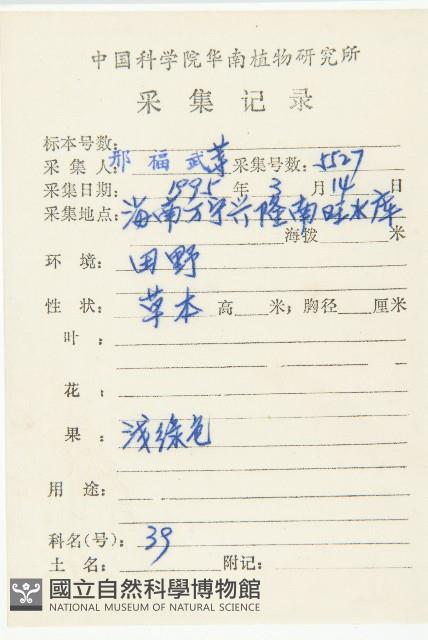 中国科学院华南植物研究所
采集记录
标本号数:
采集人 邢福武等 采集号数: 5527
采集日期: 1995 年 3 月 14 日
采集地点: 海南万宁兴隆南旺水库
海拨 米
环境: 田野
性状: 草本 高 米; 胸径 厘米
叶:
花:
果: 浅綠色
用途:
科名(号): 39
土名: 附记:
國立自然科學博物館
NATIONAL MUSEUM OF NATURAL SCIENCE